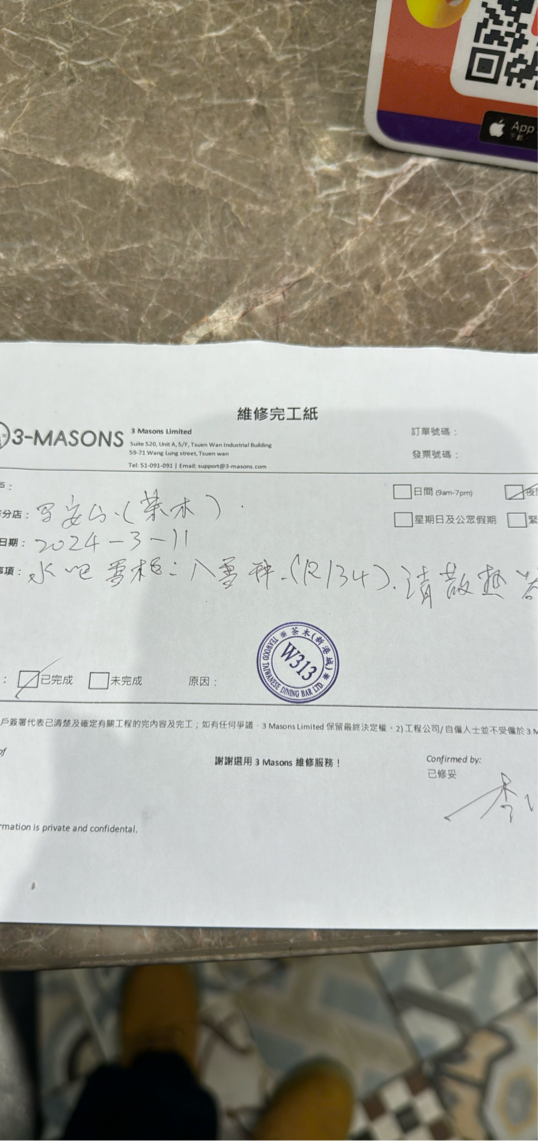 App
維修完工紙
3-MASONS
3 Masons Limited
Suite 520, Unit A, 5/F, Tsuen Wan Industrial Building
59-71 Wang Lung street, Tsuen wan
Tel: 51-091-091 | Email: support@3-masons.com
訂單號碼：
發票號碼：
日間 (9am-7pm)
星期日及公眾假期
分店：馬安山(茶木)
日期：2024-3-11
項：水吧雪柜：入雪種(R134).清散熱
已完成
未完成
原因：
茶木(新港城)
W313
TEAWOOD TAIWANESE DINING BAR LTD
戶簽署代表已清楚及確定有關工程的完內容及完工；如有任何爭議，3 Masons Limited 保留最終決定權。2)工程公司/自僱人士並不受僱於 3 M
of
謝謝選用 3 Masons 維修服務！
Confirmed by:
已修妥
rmation is private and confidential.